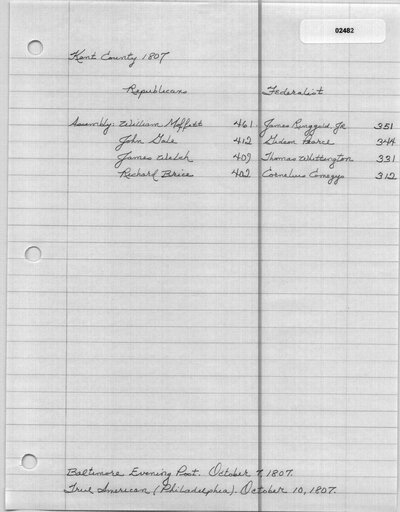 02482
Kent County 1807
Republicans Federalist
Assembly: William Moffett 461 James Ringgold Jr. 351
John Gale 412 Gideon Pearce 344
James Welch 409 Thomas Whittington 331
Richard Brice 402 Cornelius Comegys 312
Baltimore Evening Post. October 7, 1807.
True American (Philadelphia). October 10, 1807.